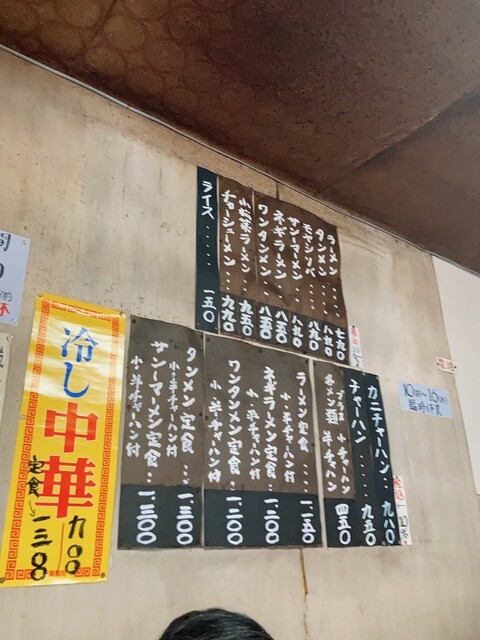 ラーメン‥‥七九〇
タンメン‥‥八九〇
モヤシソバ‥八九〇
サンマーメン‥八九〇
ネギラーメン‥八五〇
ワンタンメン‥八五〇
小松菜ラーメン‥九五〇
チャーシューメン‥九九〇
ライス‥‥‥一五〇
カニチャーハン‥九八〇
チャーハン‥‥‥九五〇
プラス 小チャーハン
各メン類 半チャーハン 四五〇
ラーメン定食‥‥一、一五〇
小・半チャーハン付
ネギラーメン定食‥一、二〇〇
小・半チャーハン付
ワンタンメン定食‥一、二〇〇
小・半チャーハン付
タンメン定食‥‥一、三〇〇
小・半チャーハン付
サンマーメン定食‥一、三〇〇
小・半チャーハン付
冷し中華
九〇〇
定食
一三〇〇
間
臨時休業